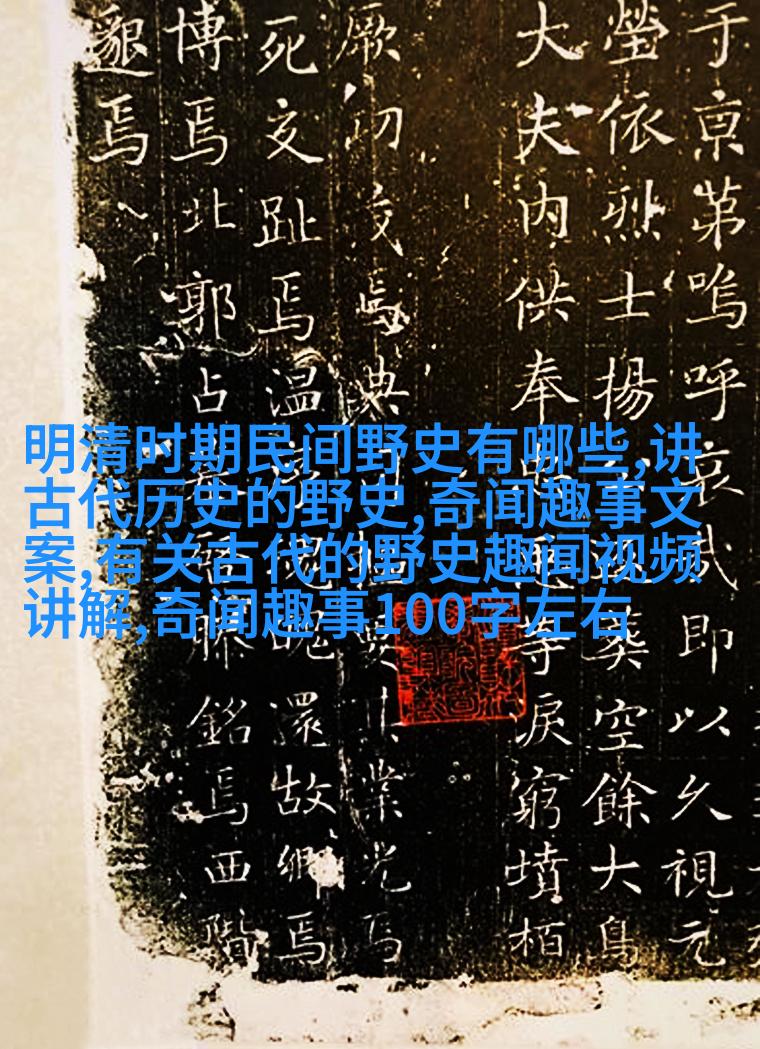 明清时期民间野史有哪些,讲
古代历史的野史,奇闻趣事文
案,有关古代的野史趣闻视频
讲解,奇闻趣事100字左右
于京第嗚呼哀哉即以久視元
塋依烈士揚葬空餘大鳥
大夫内供奉等淚窮墳栢
厥功焉典業光焉
死交趾焉温魂還故鄉焉
博焉北郭占銘焉西階
邈焉